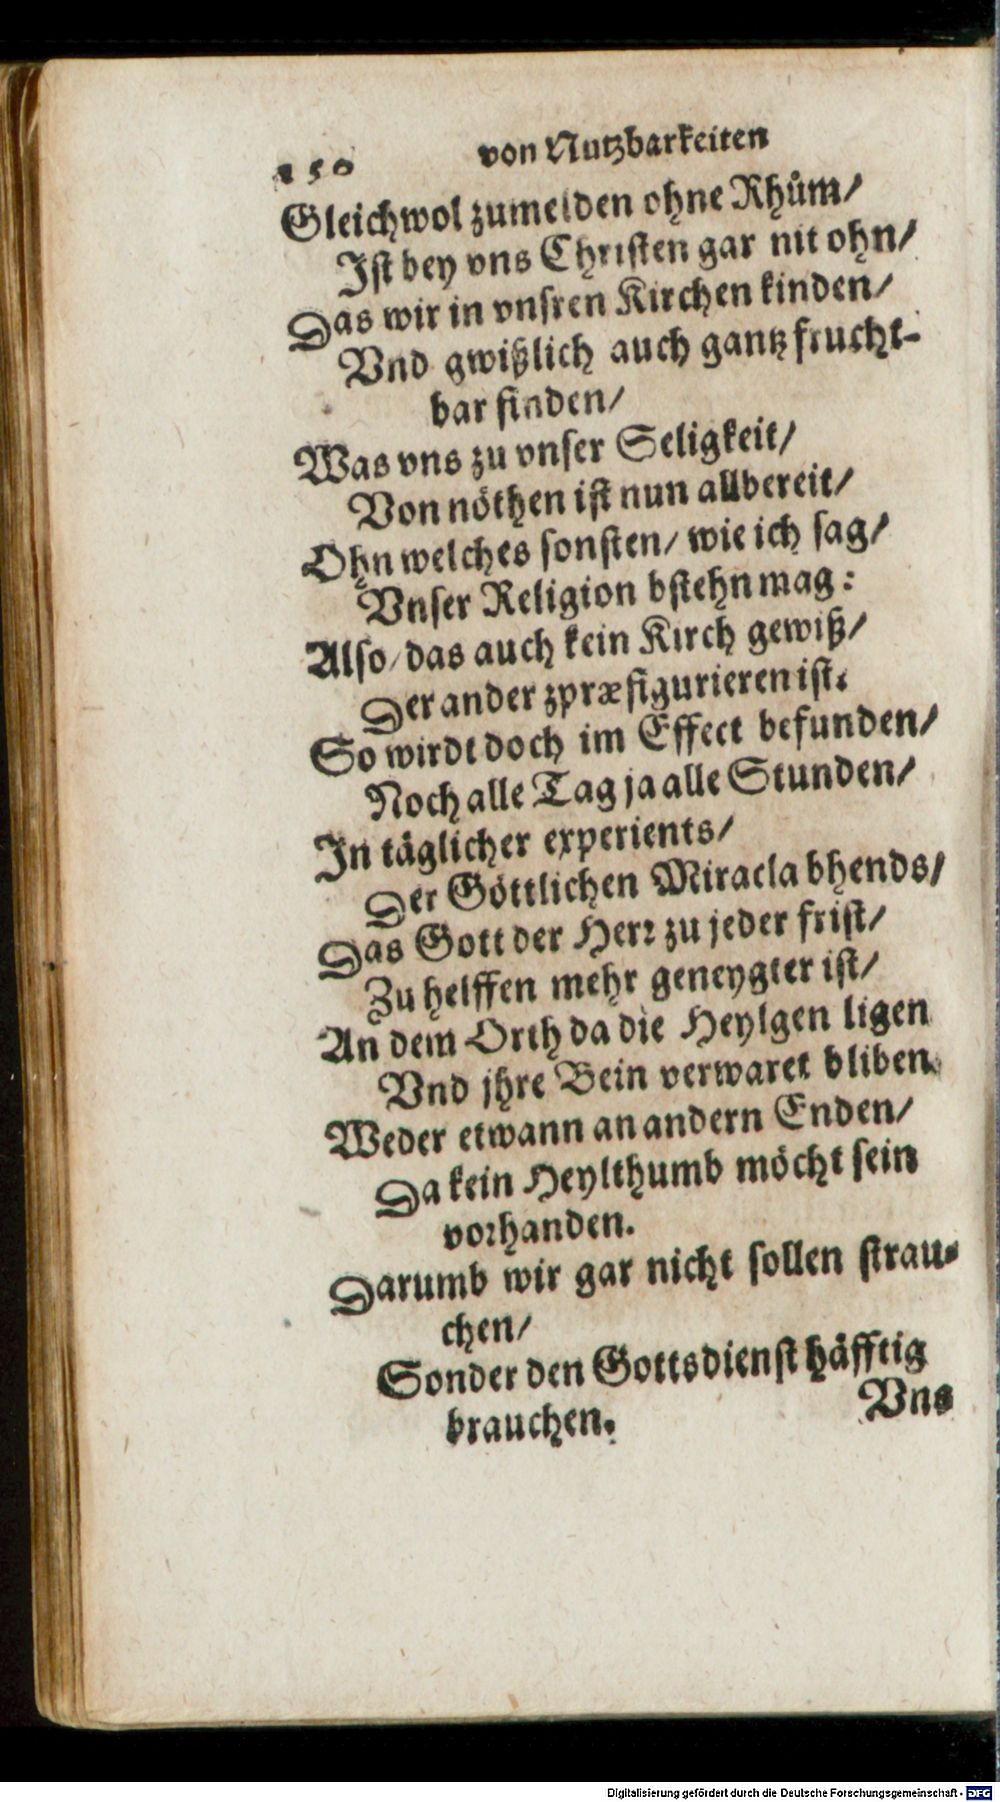 150 von Nutzbarkeiten
Gleichwol zumelden ohne Rhům/
Ist bey vns Christen gar nit ohn/
Das wir in vnsren Kirchen kinden/
Vnd gwißlich auch gantz frucht-
bar finden/
Was vns zu vnser Seligkeit/
Von nöthen ist nun allbereit/
Ohn welches sonsten/ wie ich sag/
Vnser Religion bstehn mag:
Also/ das auch kein Kirch gewiß/
Der ander zpræfigurieren ist.
So wirdt doch im Effect befunden/
Noch alle Tag ja alle Stunden/
In täglicher experients/
Der Göttlichen Miracla bhends/
Das Gott der Herr zu jeder frist/
Zu helffen mehr geneygter ist/
An dem Orth da die Heylgen ligen
Vnd jhre Bein verwaret bliben.
Weder etwann an andern Enden/
Da kein Heylthumb möcht sein
vorhanden.
Darumb wir gar nicht sollen strau-
chen/
Sonder den Gottsdienst häfftig
brauchen.
Vns
Digitalisierung gefördert durch die Deutsche Forschungsgemeinschaft - DFG